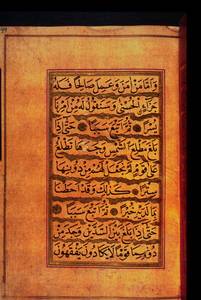 وَأَمَّا مَنْ اٰمَنَ وَعَمِلَ صَالِحًا فَلَهُ
جَزَاءً الْحُسْنٰى وَسَنَقُولُ لَهُ مِنْ اَمْرِنَا
يُسْرًا ثُمَّ اَتْبَعَ سَبَبًا حَتّٰى اِذَا
بَلَغَ مَطْلِعَ الشَّمْسِ وَجَدَهَا تَطْلُعُ
عَلٰى قَوْمٍ لَمْ نَجْعَلْ لَهُمْ مِنْ دُونِهَا
سِتْرًا كَذٰلِكَ وَقَدْ اَحَطْنَا
بِمَا لَدَيْهِ خُبْرًا ثُمَّ اَتْبَعَ سَبَبًا
حَتّٰى اِذَا بَلَغَ بَيْنَ السَّدَّيْنِ وَجَدَ مِنْ
دُونِهِمَا قَوْمًا لَا يَكَادُونَ يَفْقَهُونَ